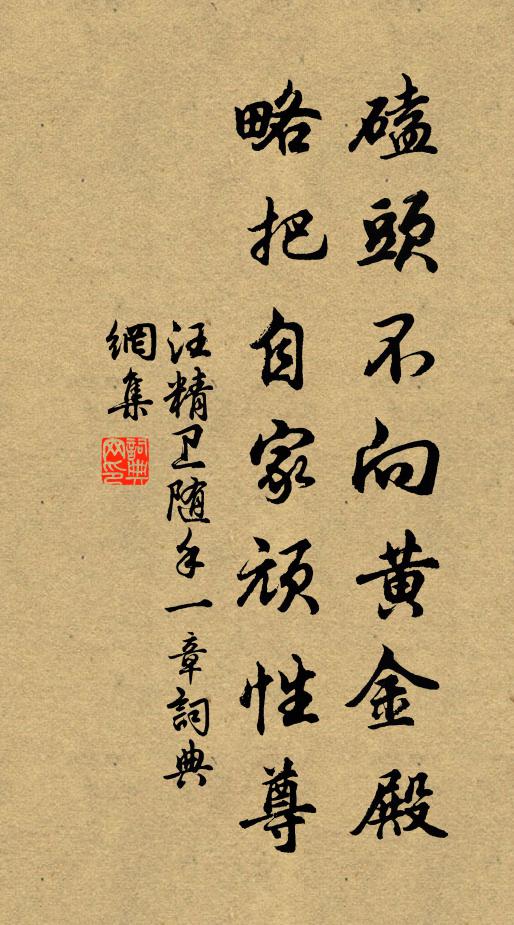 磕頭不向黄金殿
略把自家頑性尊
汪精卫随手一章詞典
網集
詞典
网印